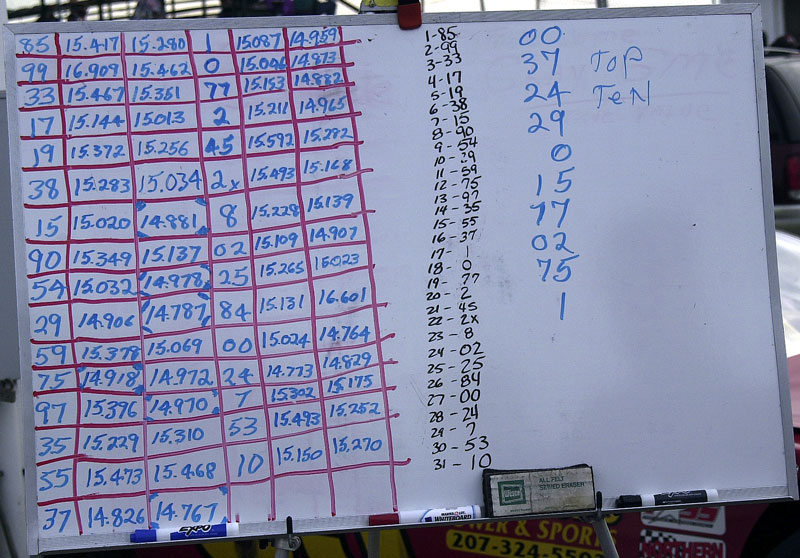 85 15.417 15.280 1 15.087 14.959
99 16.909 15.462 0 15.046 14.873
33 15.467 15.351 77 15.153 14.882
17 15.144 15.013 2 15.211 14.965
19 15.372 15.256 45 15.592 15.282
38 15.283 15.034 2x 15.493 15.168
15 15.020 14.881 8 15.228 15.139
90 15.349 15.137 02 15.109 14.907
54 15.032 14.978 25 15.265 15.023
29 14.906 14.787 84 15.131 16.601
59 15.378 15.069 00 15.024 14.764
75 14.918 14.972 24 14.773 14.829
97 15.396 14.970 7 15.302 15.175
35 15.229 15.310 53 15.493 15.252
55 15.473 15.468 10 15.150 15.270
37 14.826 14.767
1-85
2-99
3-33
4-17
5-19
6-38
7-15
8-90
9-54
10-29
11-59
12-75
13-97
14-35
15-55
16-37
17- 1
18- 0
19- 77
20- 2
21- 45
22- 2x
23- 8
24- 02
25- 25
26- 84
27- 00
28- 24
29- 7
30- 53
31- 10
00
37 TOP
24 TeN
29
0
15
77
02
75
1
ALL FELT
SEWED ERASER
EXPO
WHITEBOARD
& SPORT
207-324-550
NORTHERN